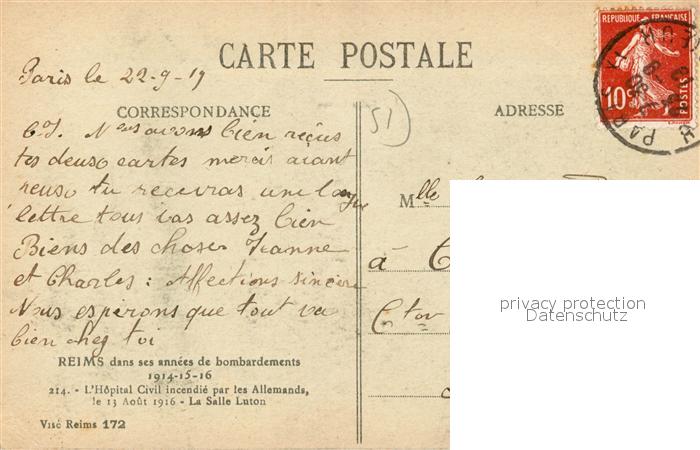 CARTE POSTALE
Paris le 22-9-19
CORRESPONDANCE
Nous avons bien reçus
tes deuso cartes mercis avant
tu receveras une longue
lettre tous vas assez bien
Biens des choses Jeanne
et Charles : Affections sincère
Nous esperons que tout va
bien chez toi
REIMS dans ses années de bombardements
1914-15-16
214. - L'Hôpital Civil incendié par les Allemands,
le 13 Août 1916 - La Salle Luton
Visé Reims 172
51
ADRESSE
Mlle
à
REPUBLIQUE FRANÇAISE
10c
POSTES
PARIS
privacy protection
Datenschutz